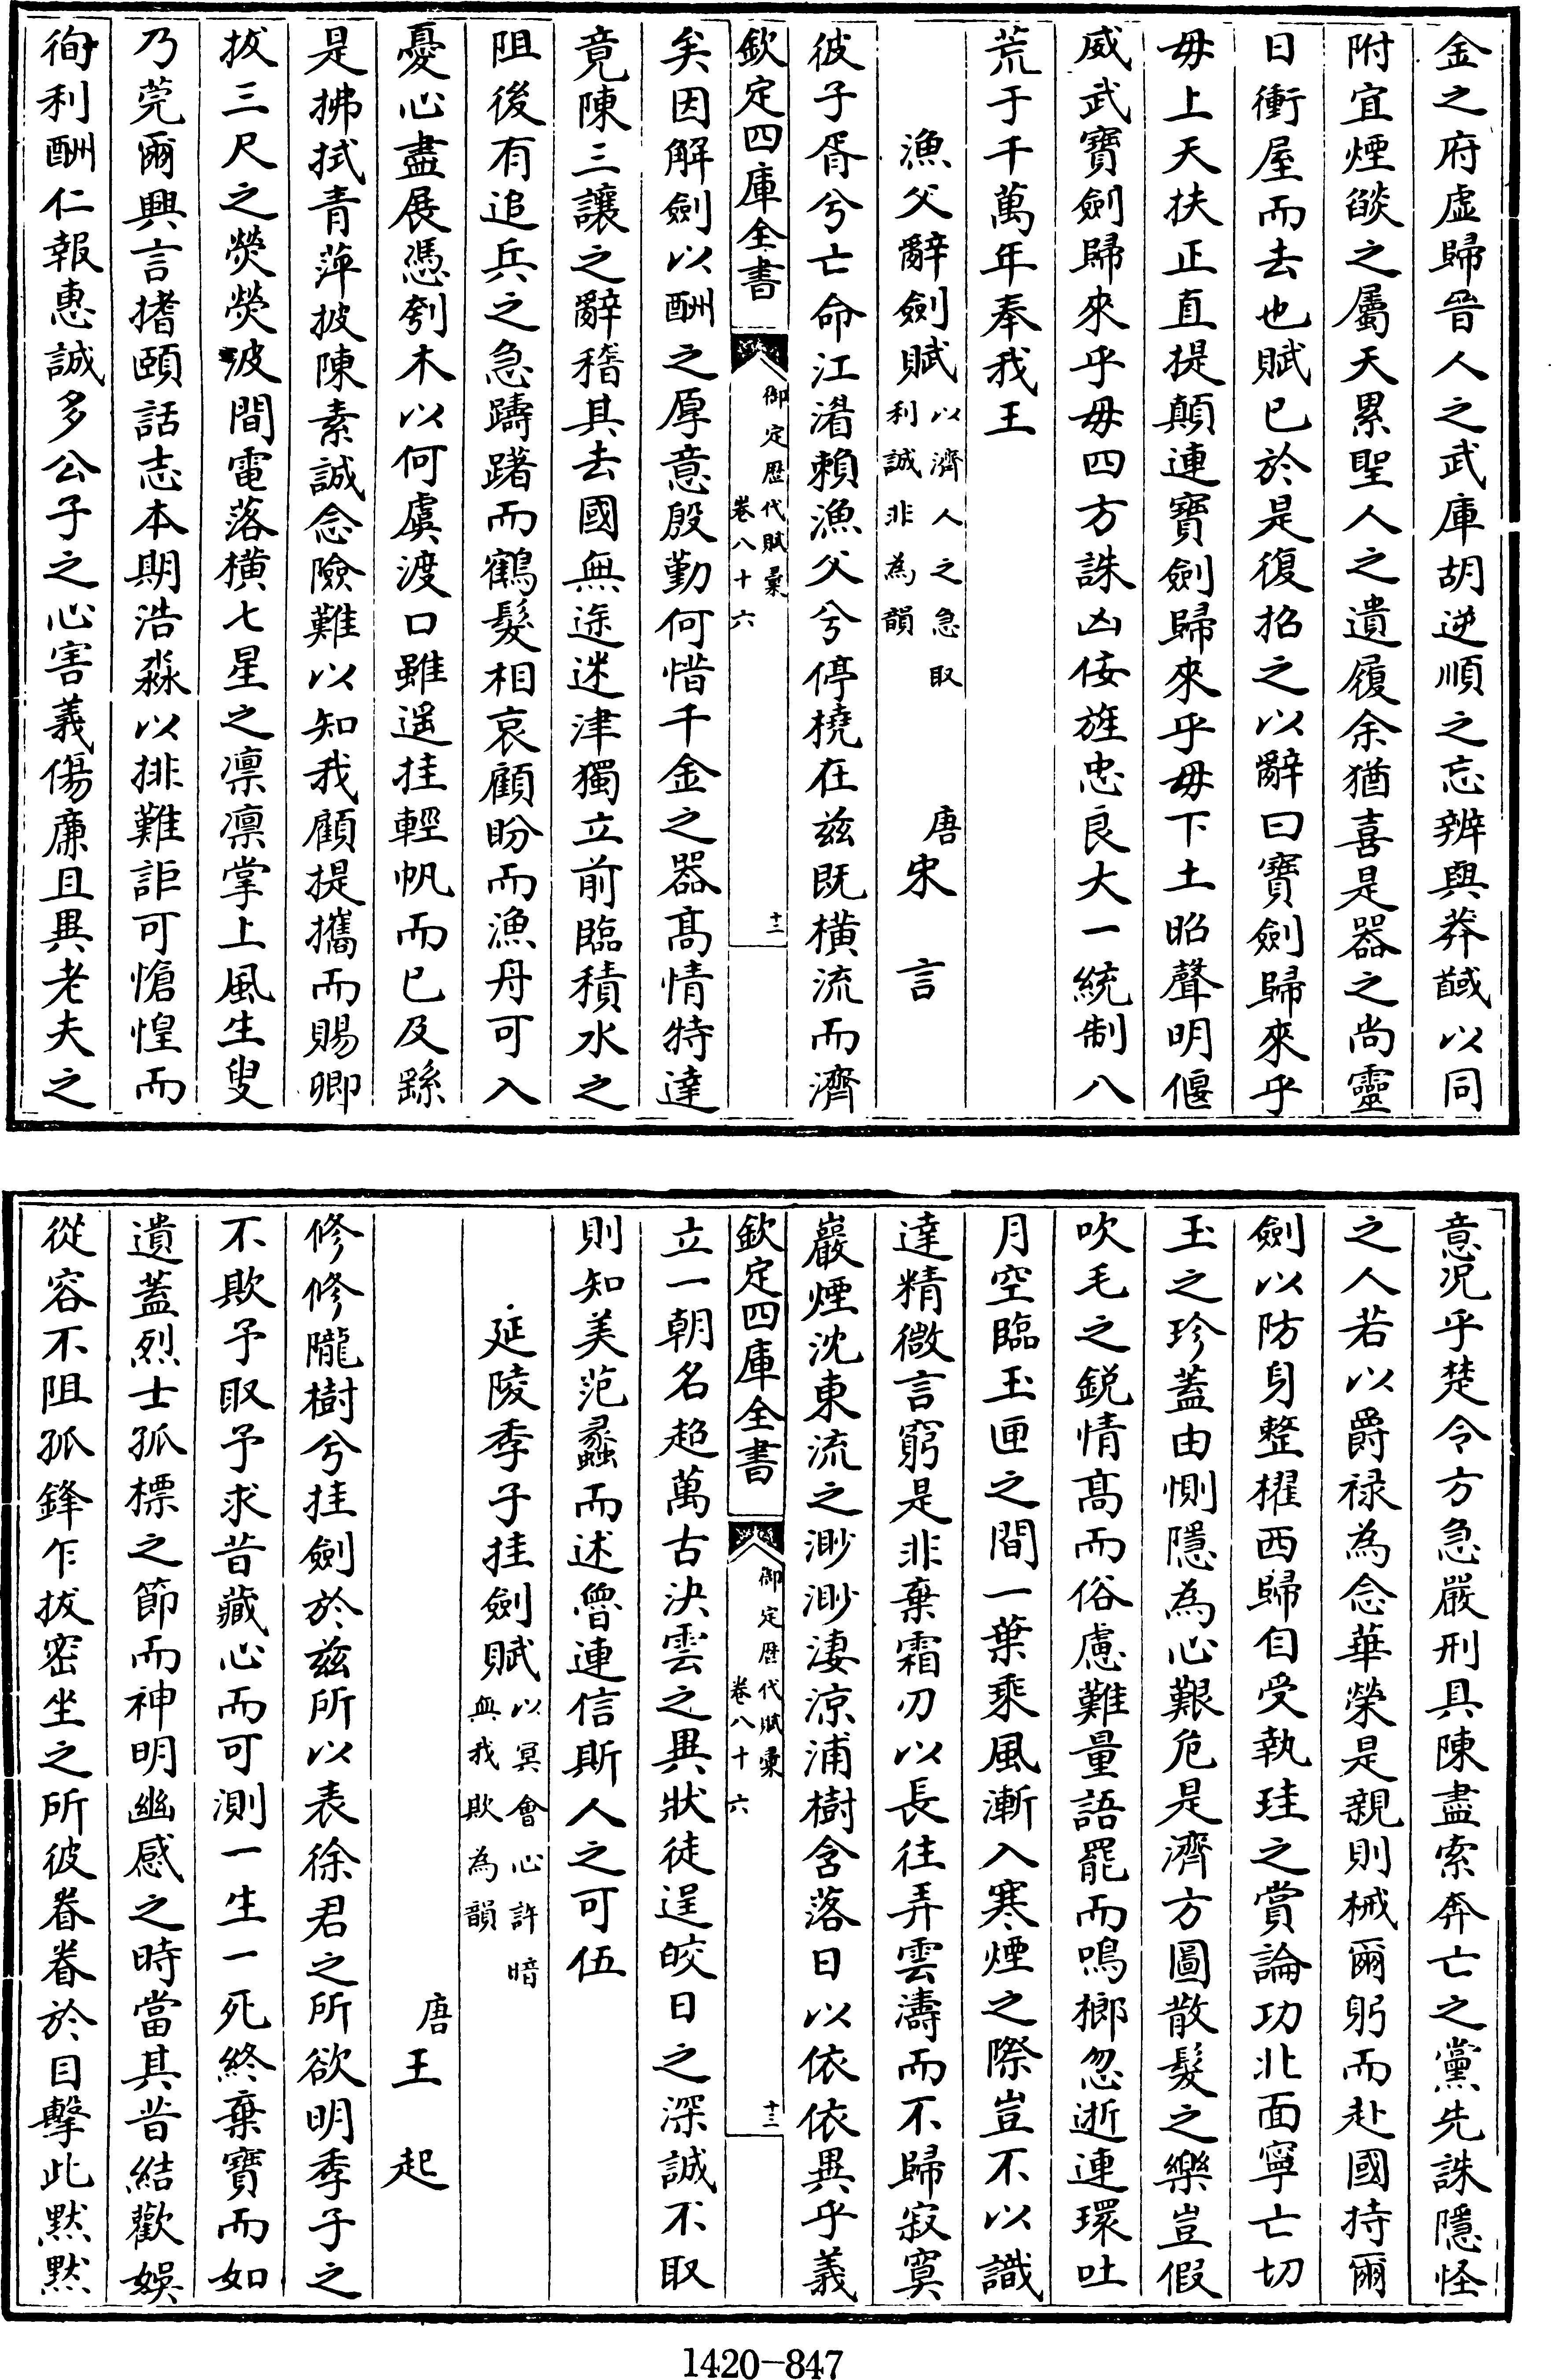 金之府虛歸晉人之武庫胡逆順之忘辨與莽馘以同
附宜煙燄之屬天累聖人之遺履余猶喜是器之尚靈
日衝屋而去也賦已於是復招之以辭曰寶劍歸來乎
毋上天扶正直提顛連寶劍歸來乎毋下土昭聲明偃
威武寶劍歸來乎毋四方誅凶佞旌忠良大一統制八
荒于千萬年奉我王
漁父辭劍賦以濟人之急取利誠非為韻 唐宋言
彼子胥兮亡命江湄賴漁父兮停橈在茲既橫流而濟
欽定四庫全書 御定歷代賦彙 卷八十六 十二
矣因解劍以酬之厚意殷勤何惜千金之器高情特達
竟陳三讓之辭稽其去國無途迷津獨立前臨積水之
阻後有追兵之急躊躇而鶴髮相哀顧盼而漁舟可入
憂心盡展憑刳木以何虞渡口雖遥挂輕帆而已及繇
是拂拭青萍披陳素誠念險難以知我顧提攜而賜卿
拔三尺之熒熒波間電落橫七星之凛凛掌上風生叟
乃莞爾興言搘頤話志本期浩淼以排難詎可愴惶而
徇利酬仁報惠誠多公子之心害義傷廉且異老夫之
意況乎楚令方急嚴刑具陳盡索奔亡之黨先誅隱怪
之人若以爵禄為念華榮是親則械爾躬而赴國持爾
劍以防身整櫂西歸自受執珪之賞論功北面寧亡切
玉之珍蓋由惻隱為心艱危是濟方圖散髮之樂豈假
吹毛之鋭情高而俗慮難量語罷而鳴榔忽逝連環吐
月空臨玉匣之間一葉乘風漸入寒煙之際豈不以識
達精微言窮是非棄霜刃以長往弄雲濤而不歸寂寞
巖煙沈東流之渺渺淒涼浦樹含落日以依依異乎義
欽定四庫全書 御定歷代賦彙 卷八十六 十三
立一朝名超萬古決雲之異狀徒逞皎日之深誠不取
則知美范蠡而述魯連信斯人之可伍
延陵季子挂劍賦以冥會心許暗無我欺為韻
唐王起
修修隴樹兮挂劍於茲所以表徐君之所欲明季子之
不欺予取予求昔藏心而可測一生一死終棄寶而如
遺蓋烈士孤標之節而神明幽感之時當其昔結歡娛
從容不阻孤鋒乍拔密坐之所彼眷眷於目擊此默默
1420-847